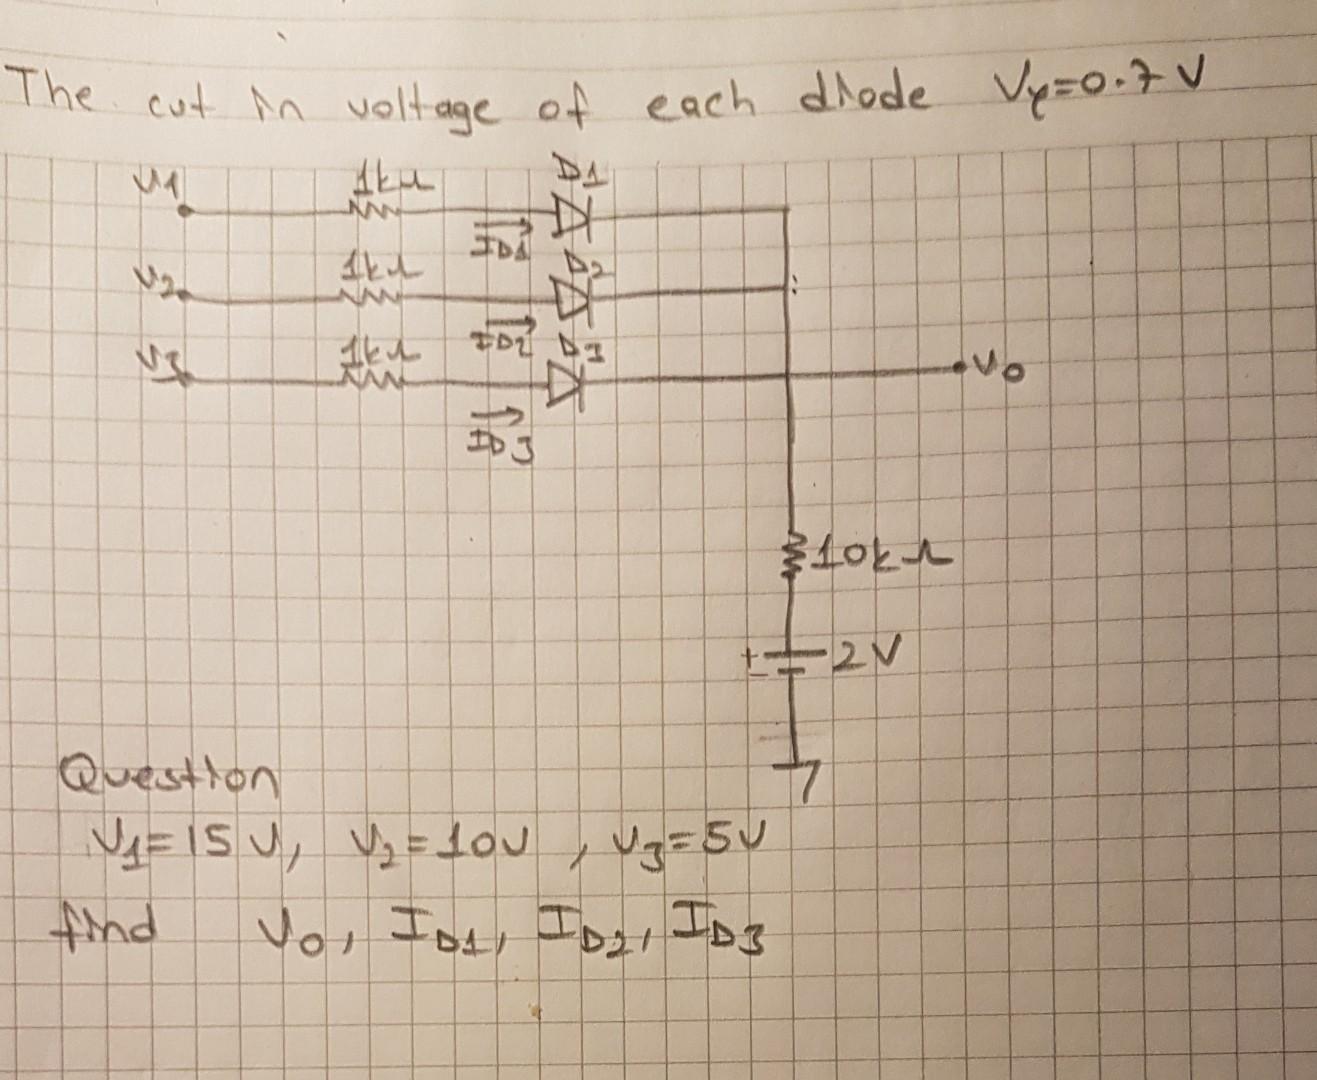 The cut in voltage of each diode Vγ=0.7 V
V1 1kΩ D1
ID1
V2 1kΩ D2
ID2
V3 1kΩ D3
ID3
Vo
10kΩ
+ 2V
-
Question
V1=15V, V2=10V, V3=5V
find Vo, ID1, ID2, ID3